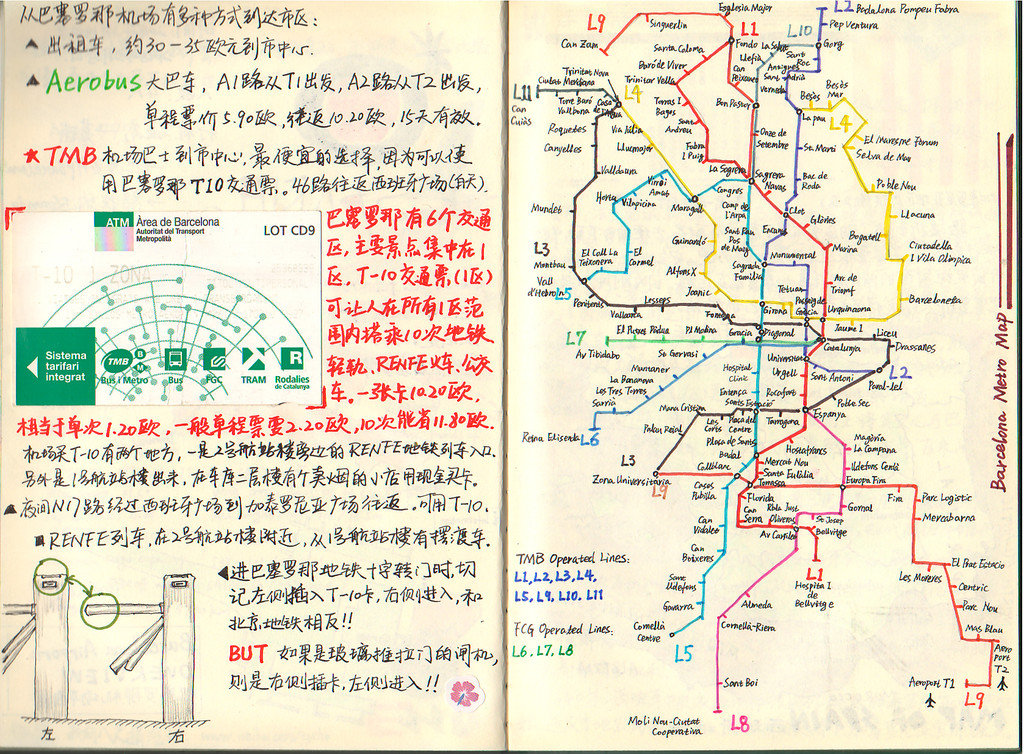 从巴塞罗那机场有多种方式到达市区:
▲ 出租车，约30-35欧元到市中心.
▲ Aerobus 大巴车，A1路从T1出发，A2路从T2出发，
单程票价5.90欧，往返10.20欧，15天有效。
★ TMB 机场巴士到市中心，最便宜的选择，因为可以使
用巴塞罗那T10交通票。46路往返西班牙广场(白天).
ATM Àrea de Barcelona
Autoritat del Transport
Metropolità
LOT CD9
Sistema
tarifari
integrat
TMB
Bus i Metro
Bus
FGC
TRAM
R
Rodalies
de Catalunya
巴塞罗那有6个交通
区，主要景点集中在1
区，T-10交通票(1区)
可让人在所有1区范
围内搭乘10次地铁
轻轨、RENFE火车、公交
车。一张卡10.20欧，
相当于单次1.20欧，一般单程票要2.20欧，10次能省11.80欧.
机场买T-10有两个地方，一是2号航站楼旁边的RENFE地铁列车入口.
另外是1号航站楼出来，在车库二层楼有个卖烟的小店用现金买卡。
▲夜间N17路经过西班牙广场到加泰罗尼亚广场往返。可用T-10.
■RENFE列车，在2号航站楼附近，从1号航站楼有摆渡车.
◀进巴塞罗那地铁十字转门时，切
记左侧插入T-10卡，右侧进入，和
北京地铁相反!!
BUT 如果是玻璃推拉门的闸机，
则是右侧插卡，左侧进入!!
左
右
L9
Singuerlin
Esglesia Major
L2
Badalona Pompeu Fabra
Can Zam
L1
L10
Pep Ventura
Santa Coloma
Fondo
La Salut
Gorg
Llefià
Sant Roc
Baró de Viver
Can Peixauet
Artigues
Sant Adrià
Trinitat Nova
Ciutat Meridiana
Trinitat Vella
Verneda
Besòs
Besòs Mar
L11
Can Cuiàs
Torre Baró
Vallbona
Casa de l'Aigua
L4
Torras I Bages
Bon Pastor
La Pau
L4
Roquetes
Via Júlia
Sant Andreu
Onze de Setembre
El Maresme Forum
Canyelles
Llucmajor
Fabra I Puig
St. Martí
Selva de Mar
Valldaura
La Sagrera
Sagrera
Bac de Roda
Virrei Amat
Congrés
Navas
Poble Nou
Horta
Vilapicina
Maragall
Camp de l'Arpa
Clot
Mundet
Glòries
Llacuna
Sant Pau
Dos de Maig
Encants
L3
El Coll La Teixonera
El Carmel
Guinardó
Bogatell
Marina
Ciutadella
I Vila Olímpica
Montbau
Monumental
Sagrada Familia
Alfons X
Vall d'Hebron
L5
Tetuan
Arc de Triomf
Joanic
Penitents
Lesseps
Girona
Passeig de Gràcia
Barceloneta
Vallcarca
Fontana
Urquinaona
Jaume I
L7
El Putxet
Pàdua
Pl Molina
Gràcia
Diagonal
Liceu
Catalunya
Drassanes
Av Tibidabo
St Gervasi
Universitat
Muntaner
Hospital Clinic
Urgell
Sant Antoni
L2
La Bonanova
Les Tres Torres
Entença
Rocafort
Paral·lel
Sarrià
Sants Estació
Poble Sec
Maria Cristina
Reina Elisenda
L6
Les Corts
Plaça del Centre
Tarragona
Espanya
Palau Reial
Plaça de Sants
Hostafrancs
Magòria
La Campana
L3
Badal
Mercat Nou
Collblanc
Santa Eulàlia
Ildefons Cerdà
Zona Universitària
L9
Torrassa
Europa Fira
Florida
Fira
Parc Logistic
Pubilla Cases
Can Serra
Rbla Just Oliveras
Gornal
Mercabarna
St Josep
Can Vidalet
Av Carrilet
Bellvitge
Can Boixeres
L1
El Prat Estació
Les Moreres
Hospital de Bellvitge
Centric
Sant Ildefons
Parc Nou
Gavarra
Almeda
Mas Blau
Cornellà Centre
Cornellà-Riera
Aeroport T2
L5
Sant Boi
Aeroport T1
L9
Molí Nou-Ciutat
Cooperativa
L8
TMB Operated Lines:
L1, L2, L3, L4,
L5, L9, L10, L11
FCG Operated Lines:
L6, L7, L8
Barcelona Metro Map